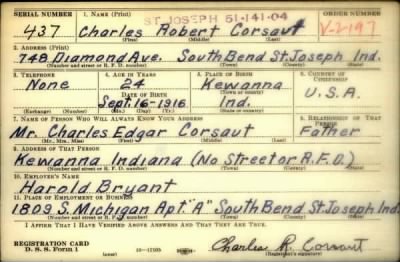 SERIAL NUMBER 1. NAME (Print) ST JOSEPH 51-141-04 ORDER NUMBER
437 Charles Robert Corsaut V-2197
(First) (Middle) (Last)
2. ADDRESS (Print)
748 Diamond Ave. South Bend St. Joseph Ind.
(Number and street or R. F. D. number) (Town) (County) (State)
3. TELEPHONE 4. AGE IN YEARS 5. PLACE OF BIRTH 6. COUNTRY OF CITIZENSHIP
None 24 Kewanna U.S.A.
DATE OF BIRTH
Sept.-16-1916 Ind.
(Exchange) (Number) (Mo.) (Day) (Yr.) (State or country)
7. NAME OF PERSON WHO WILL ALWAYS KNOW YOUR ADDRESS 8. RELATIONSHIP OF THAT PERSON
Mr. Charles Edgar Corsaut Father
(Mr., Mrs., Miss) (First) (Middle) (Last)
9. ADDRESS OF THAT PERSON
Kewanna Indiana (No Street or R.F.D.)
(Number and street or R. F. D. number) (Town) (County) (State)
10. EMPLOYER'S NAME
Harold Bryant
11. PLACE OF EMPLOYMENT OR BUSINESS
1809 S. Michigan Apt. "A" South Bend St. Joseph Ind.
(Number and street or R. F. D. number) (Town) (County) (State)
I AFFIRM THAT I HAVE VERIFIED ABOVE ANSWERS AND THAT THEY ARE TRUE.
REGISTRATION CARD
D. S. S. Form 1 16-17105 Charles R. Corsaut